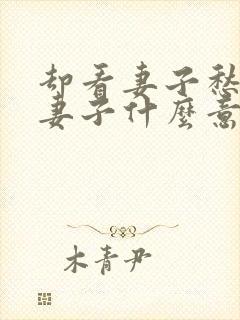 却看妻子愁
妻子什麼意
木青尹